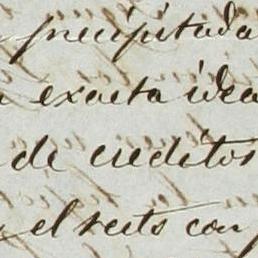 precipitada
exacta idea
de creditos
el resto con